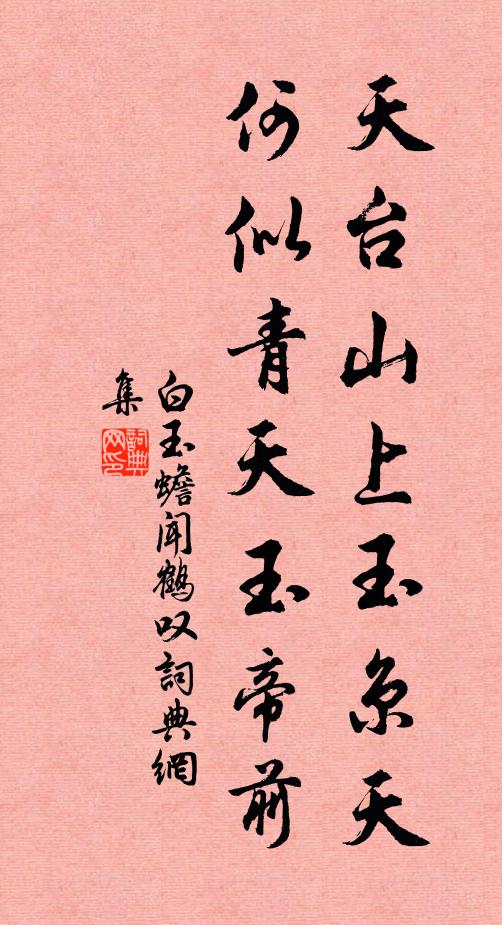 天台山上玉京天
何似青天玉帝前
白玉蟾闻鹤叹詞典網
集
詞典网印